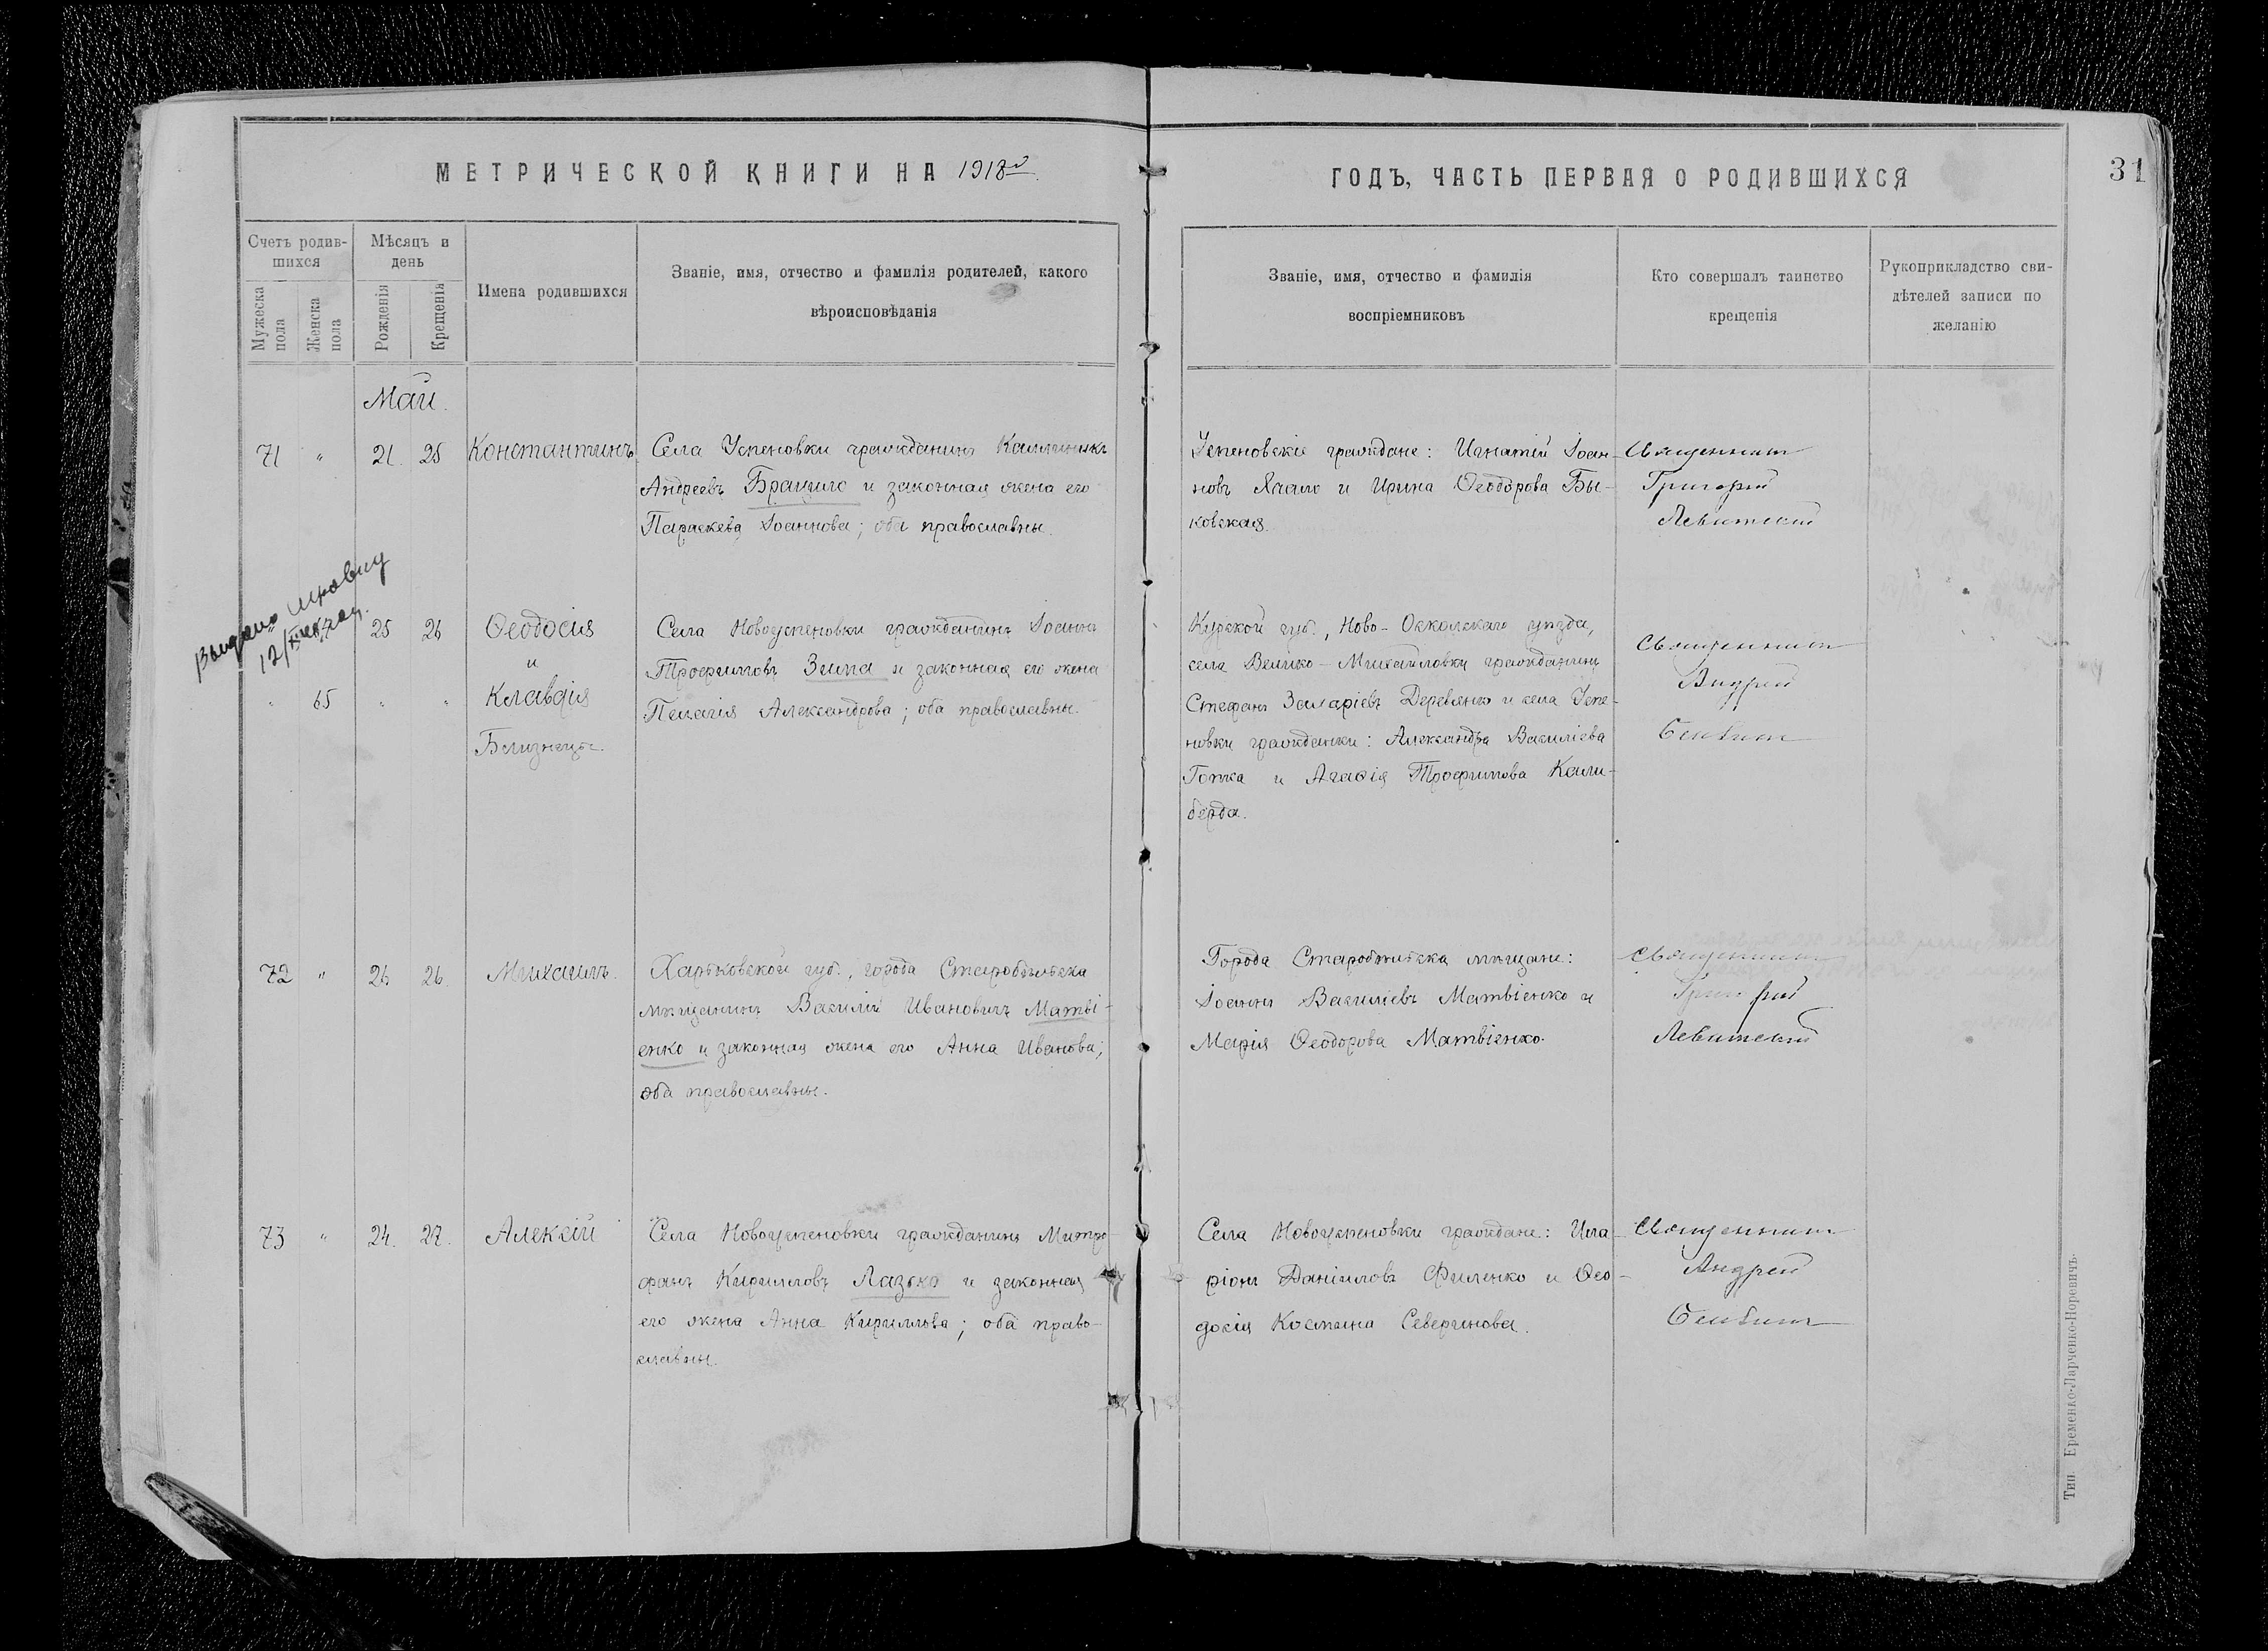 МЕТРИЧЕСКОЙ КНИГИ НА 1918й
Счетъ родив-
шихся
Мужеска пола
Женска пола
Мѣсяцъ и
день
Рожденія
Крещенія
Имена родившихся
Званіе, имя, отчество и фамилія родителей, какого
вѣроисповѣданія
Май.
71 " 21. 25 Константинъ
Села Успеновки гражданинъ Каллиникъ
Андреевъ Бражко и законная жена его
Параскева Іоаннова; оба православны.
Выдано
25 26 Ѳеодосія
и
" 65 " " Клавдія
Близнецы.
Села Новоуспеновки гражданинъ Іоаннъ
Трофимовъ Зима и законная его жена
Пелагія Александрова; оба православны.
72 " 26 26. Михаилъ.
Харьковской губ., города Старобѣльска
мѣщанинъ Василій Ивановичъ Матві-
енко и законная жена его Анна Иванова;
оба православны.
73 " 24. 27. Алексій
Села Новоуспеновки гражданинъ Митро-
фанъ Кирилловъ Лазько и законная
его жена Анна Кириллова; оба право-
славны.
ГОДЪ, ЧАСТЬ ПЕРВАЯ О РОДИВШИХСЯ
31
Званіе, имя, отчество и фамилія
воспріемниковъ
Кто совершалъ таинство
крещенія
Рукоприкладство сви-
дѣтелей записи по
желанію
Успеновскіе граждане: Игнатій Іоан-
новъ и Ирина Ѳеодорова Бы-
ковская.
Священникъ
Григорій
Левитскій
Курской губ., Ново-Оскольскаго уѣзда,
села Велико-Михайловки гражданинъ
Стефанъ Деревянко и села Успе-
новки гражданки: Александра Василіева
и Агафія Трофимова Кали-
берда.
Священникъ
Андрей
Города Старобѣльска мѣщане:
Іоаннъ Василіевъ Матвіенко и
Марія Ѳеодорова Матвіенко.
Священникъ
Григорій
Левитскій
Села Новоуспеновки граждане: Ила-
ріонъ Даніиловъ Филенко и Ѳео-
досія Космина Северинова.
Священникъ
Андрей
Тип. Еременко-Ларченко-Норевичъ.